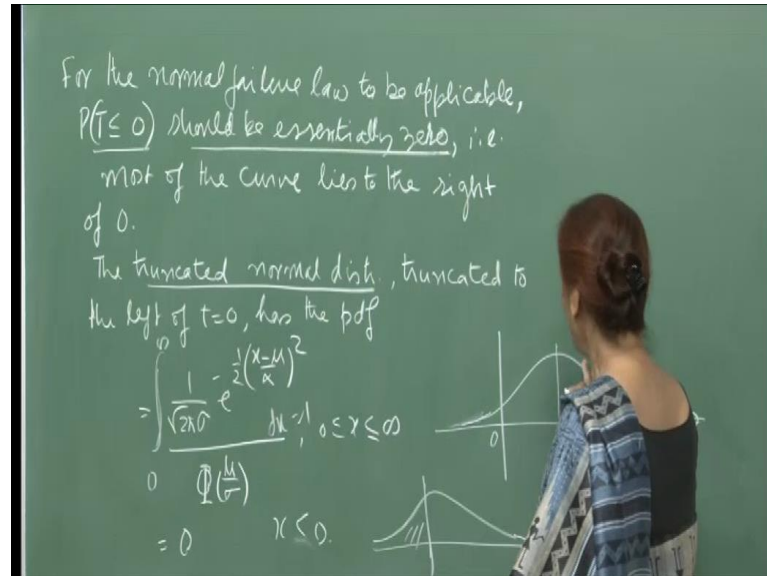 For the normal failure law to be applicable,
P(T ≤ 0) should be essentially zero, i.e.
most of the curve lies to the right
of 0.
The truncated normal distn., truncated to
the left of t=0, has the pdf
= ∫₀^∞ 1/(√2πσ) e^(-1/2((x-μ)/α)²) dx = 1, 0 ≤ x ≤ ∞
Φ(μ/σ)
= 0 x ≤ 0.
0